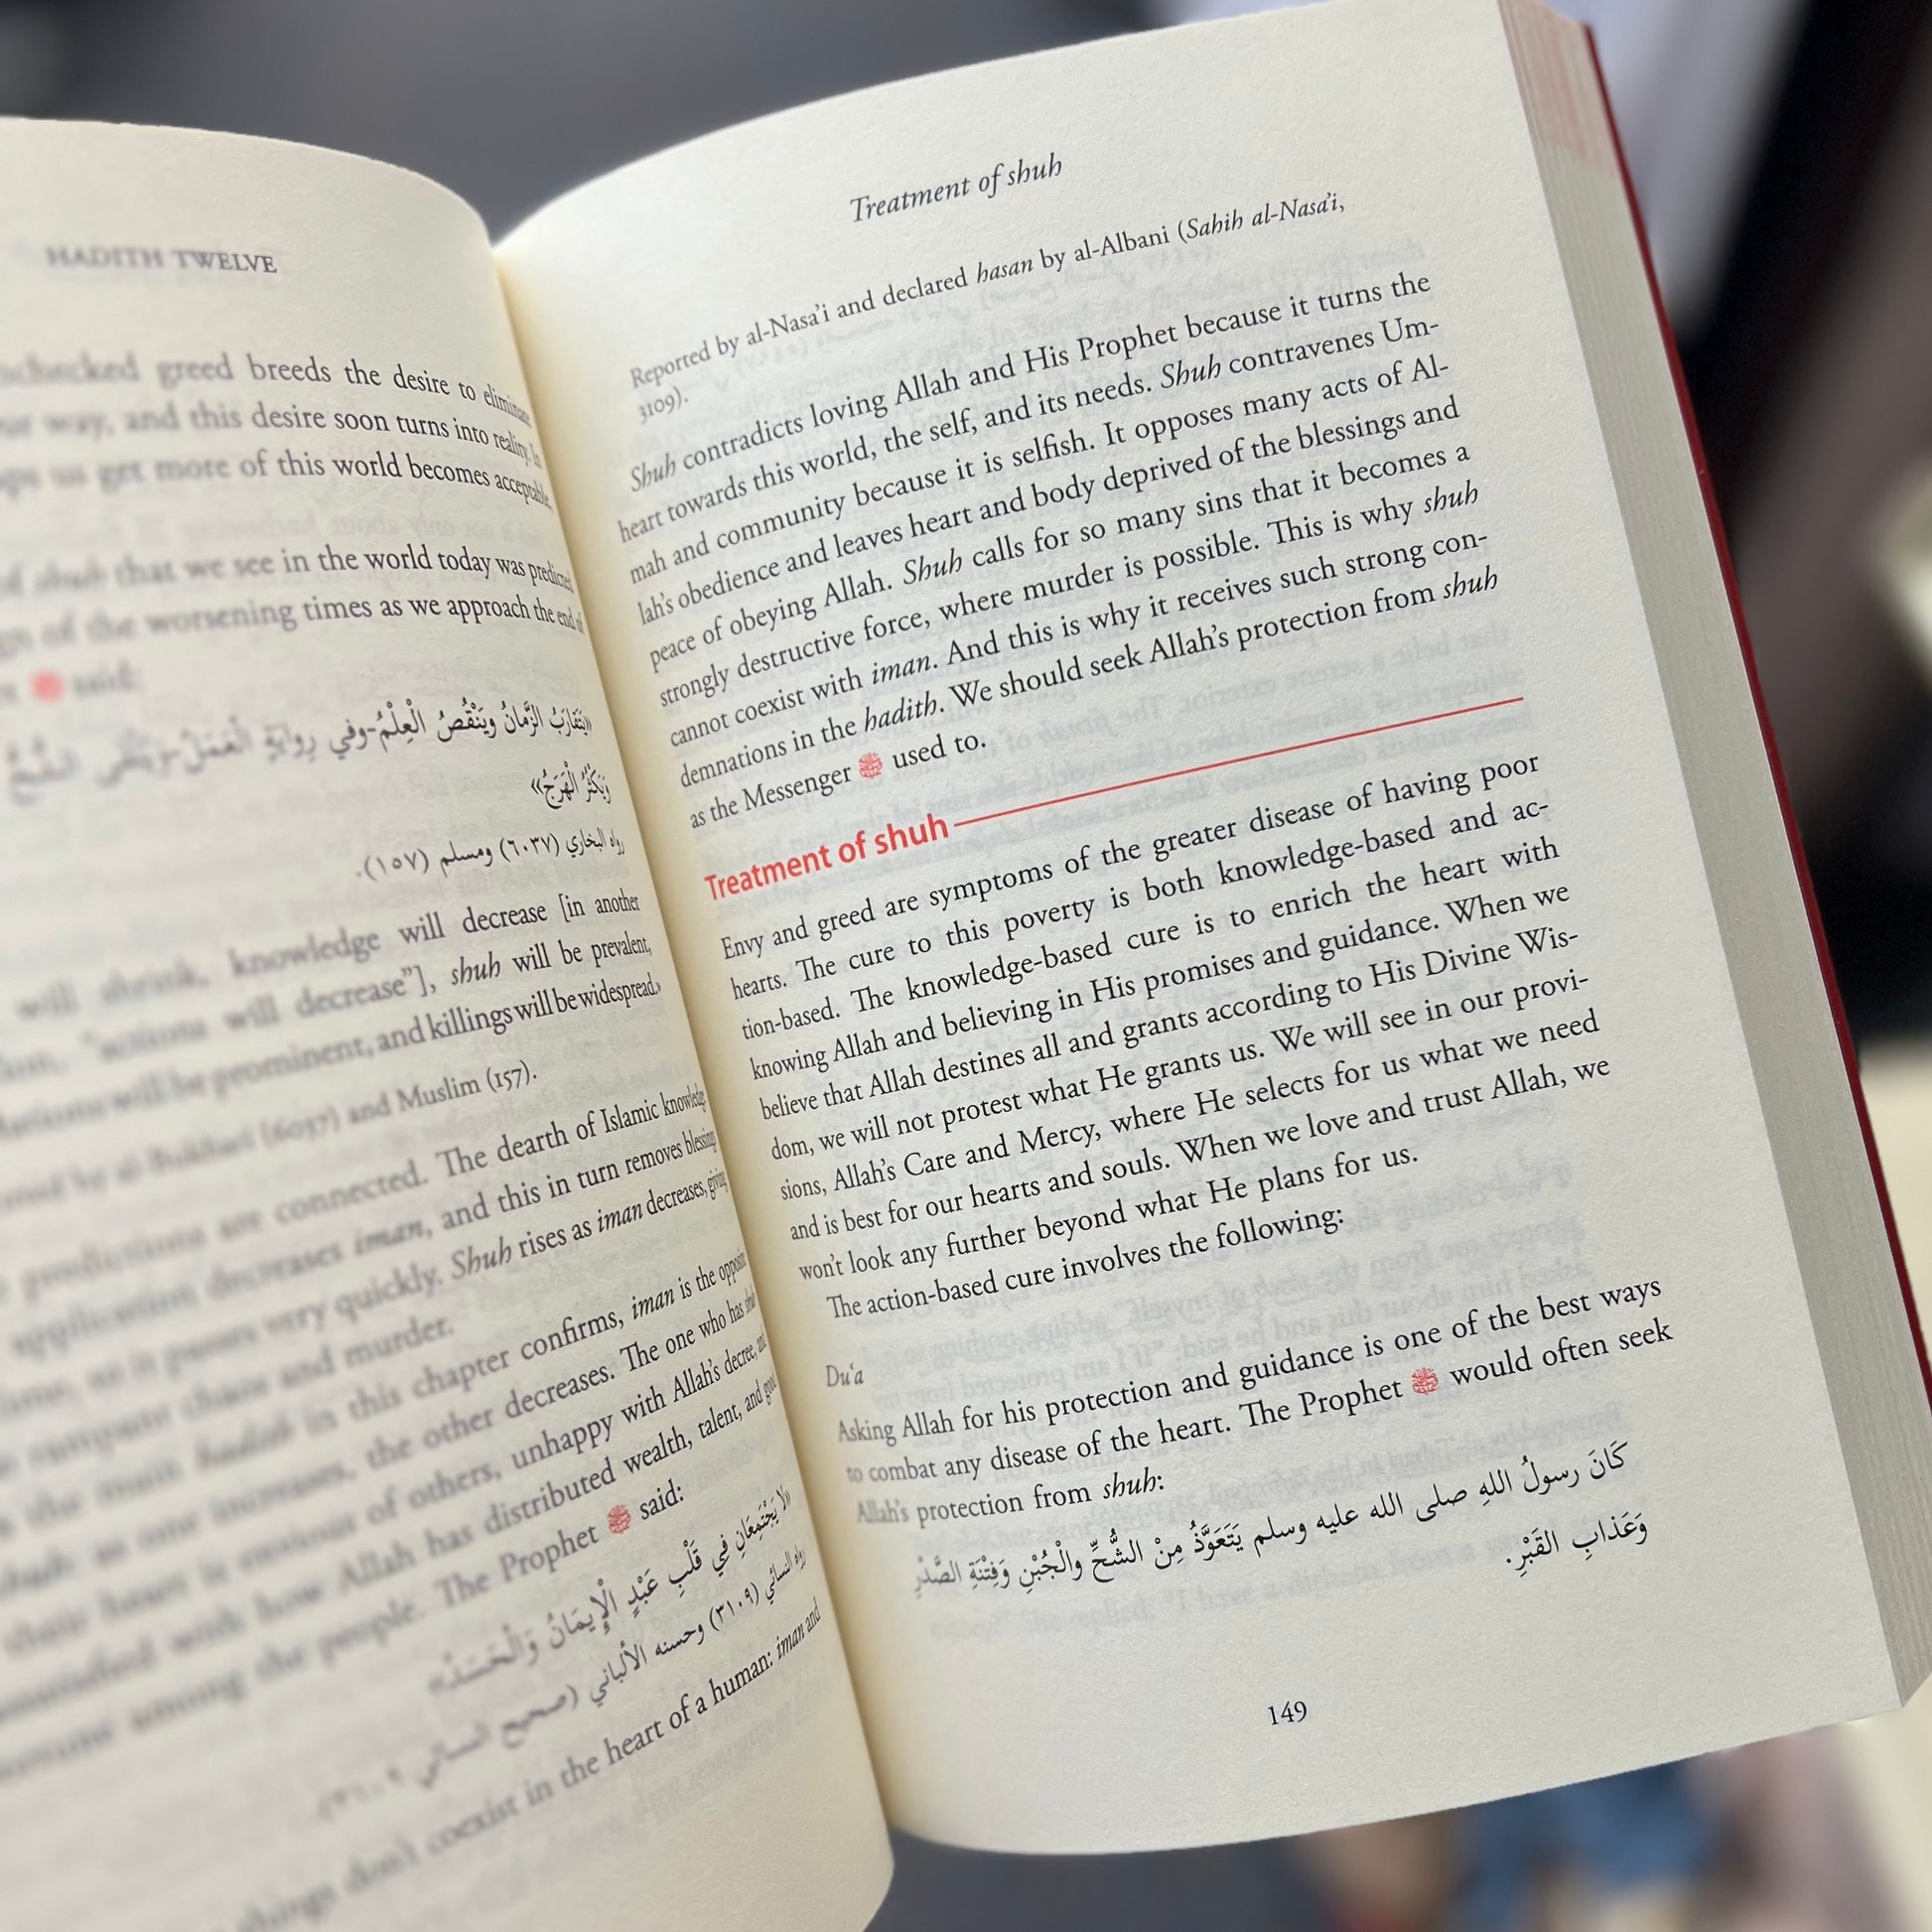 HADITH TWELVE
greed breeds the desire to eliminate
way, and this desire soon turns into reality. In
us get more of this world becomes acceptable.
of shuh that we see in the world today was predicted
of the worsening times as we approach the end of
said:
«يَتَقَارَبُ الزَّمَانُ وَيَنْقُصُ الْعِلْمُ-وفي رِوايَةٍ الْعَمَلُ-وَيُلْقَى الشُّحُّ
وَيَكْثُرُ الْهَرْجُ»
رواه البخاري (٦٠٣٧) ومسلم (١٥٧).
will shrink, knowledge will decrease [in another
"actions will decrease"], shuh will be prevalent,
will be prominent, and killings will be widespread.»
by al-Bukhari (6037) and Muslim (157).
predictions are connected. The dearth of Islamic knowledge
application decreases iman, and this in turn removes blessings
as it passes very quickly. Shuh rises as iman decreases, giving
rampant chaos and murder.
the main hadith in this chapter confirms, iman is the opposite
as one increases, the other decreases. The one who has shuh
their heart is envious of others, unhappy with Allah's decree, and
with how Allah has distributed wealth, talent, and good
among the people. The Prophet ﷺ said:
«لَا يَجْتَمِعَانِ فِي قَلْبِ عَبْدٍ الْإِيمَانُ وَالْحَسَدُ»
رواه النسائي (٣١٠٩) وحسنه الألباني (صحيح النسائي ٣١٠٩).
things don't coexist in the heart of a human: iman and
Treatment of shuh
Reported by al-Nasa'i and declared hasan by al-Albani (Sahih al-Nasa'i,
3109).
Shuh contradicts loving Allah and His Prophet because it turns the
heart towards this world, the self, and its needs. Shuh contravenes Um-
mah and community because it is selfish. It opposes many acts of Al-
lah's obedience and leaves heart and body deprived of the blessings and
peace of obeying Allah. Shuh calls for so many sins that it becomes a
strongly destructive force, where murder is possible. This is why shuh
cannot coexist with iman. And this is why it receives such strong con-
demnations in the hadith. We should seek Allah's protection from shuh
as the Messenger ﷺ used to.
Treatment of shuh
Envy and greed are symptoms of the greater disease of having poor
hearts. The cure to this poverty is both knowledge-based and ac-
tion-based. The knowledge-based cure is to enrich the heart with
knowing Allah and believing in His promises and guidance. When we
believe that Allah destines all and grants according to His Divine Wis-
dom, we will not protest what He grants us. We will see in our provi-
sions, Allah's Care and Mercy, where He selects for us what we need
and is best for our hearts and souls. When we love and trust Allah, we
won't look any further beyond what He plans for us.
The action-based cure involves the following:
Du'a
Asking Allah for his protection and guidance is one of the best ways
to combat any disease of the heart. The Prophet ﷺ would often seek
Allah's protection from shuh:
كَانَ رسولُ اللهِ صلى الله عليه وسلم يَتَعَوَّذُ مِنْ الشُّحِّ والْجُبْنِ وَفِتْنَةِ الصَّدْرِ
وَعَذابِ القَبْرِ.
149